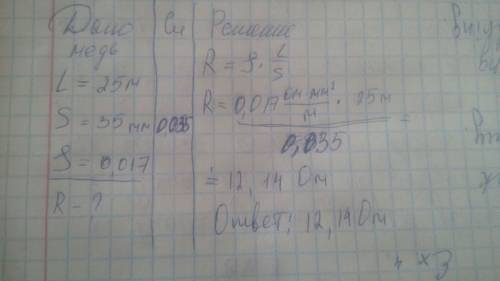 Дано
медь
L = 25 м
S = 35 мм
ρ = 0,017
R - ?
Си
0,035
Решение
R = ρ · L/S
R = 0,017 ом·мм²/м · 25 м / 0,035 =
= 12,14 Ом
Ответ: 12,14 Ом